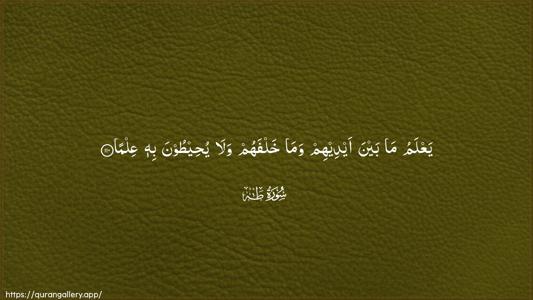 يَعْلَمُ مَا بَيْنَ اَيْدِيْهِمْ وَمَا خَلْفَهُمْ وَلَا يُحِيْطُوْنَ بِهٖ عِلْمًا
سُوْرَةُ طٰهٰ
https://qurangallery.app/